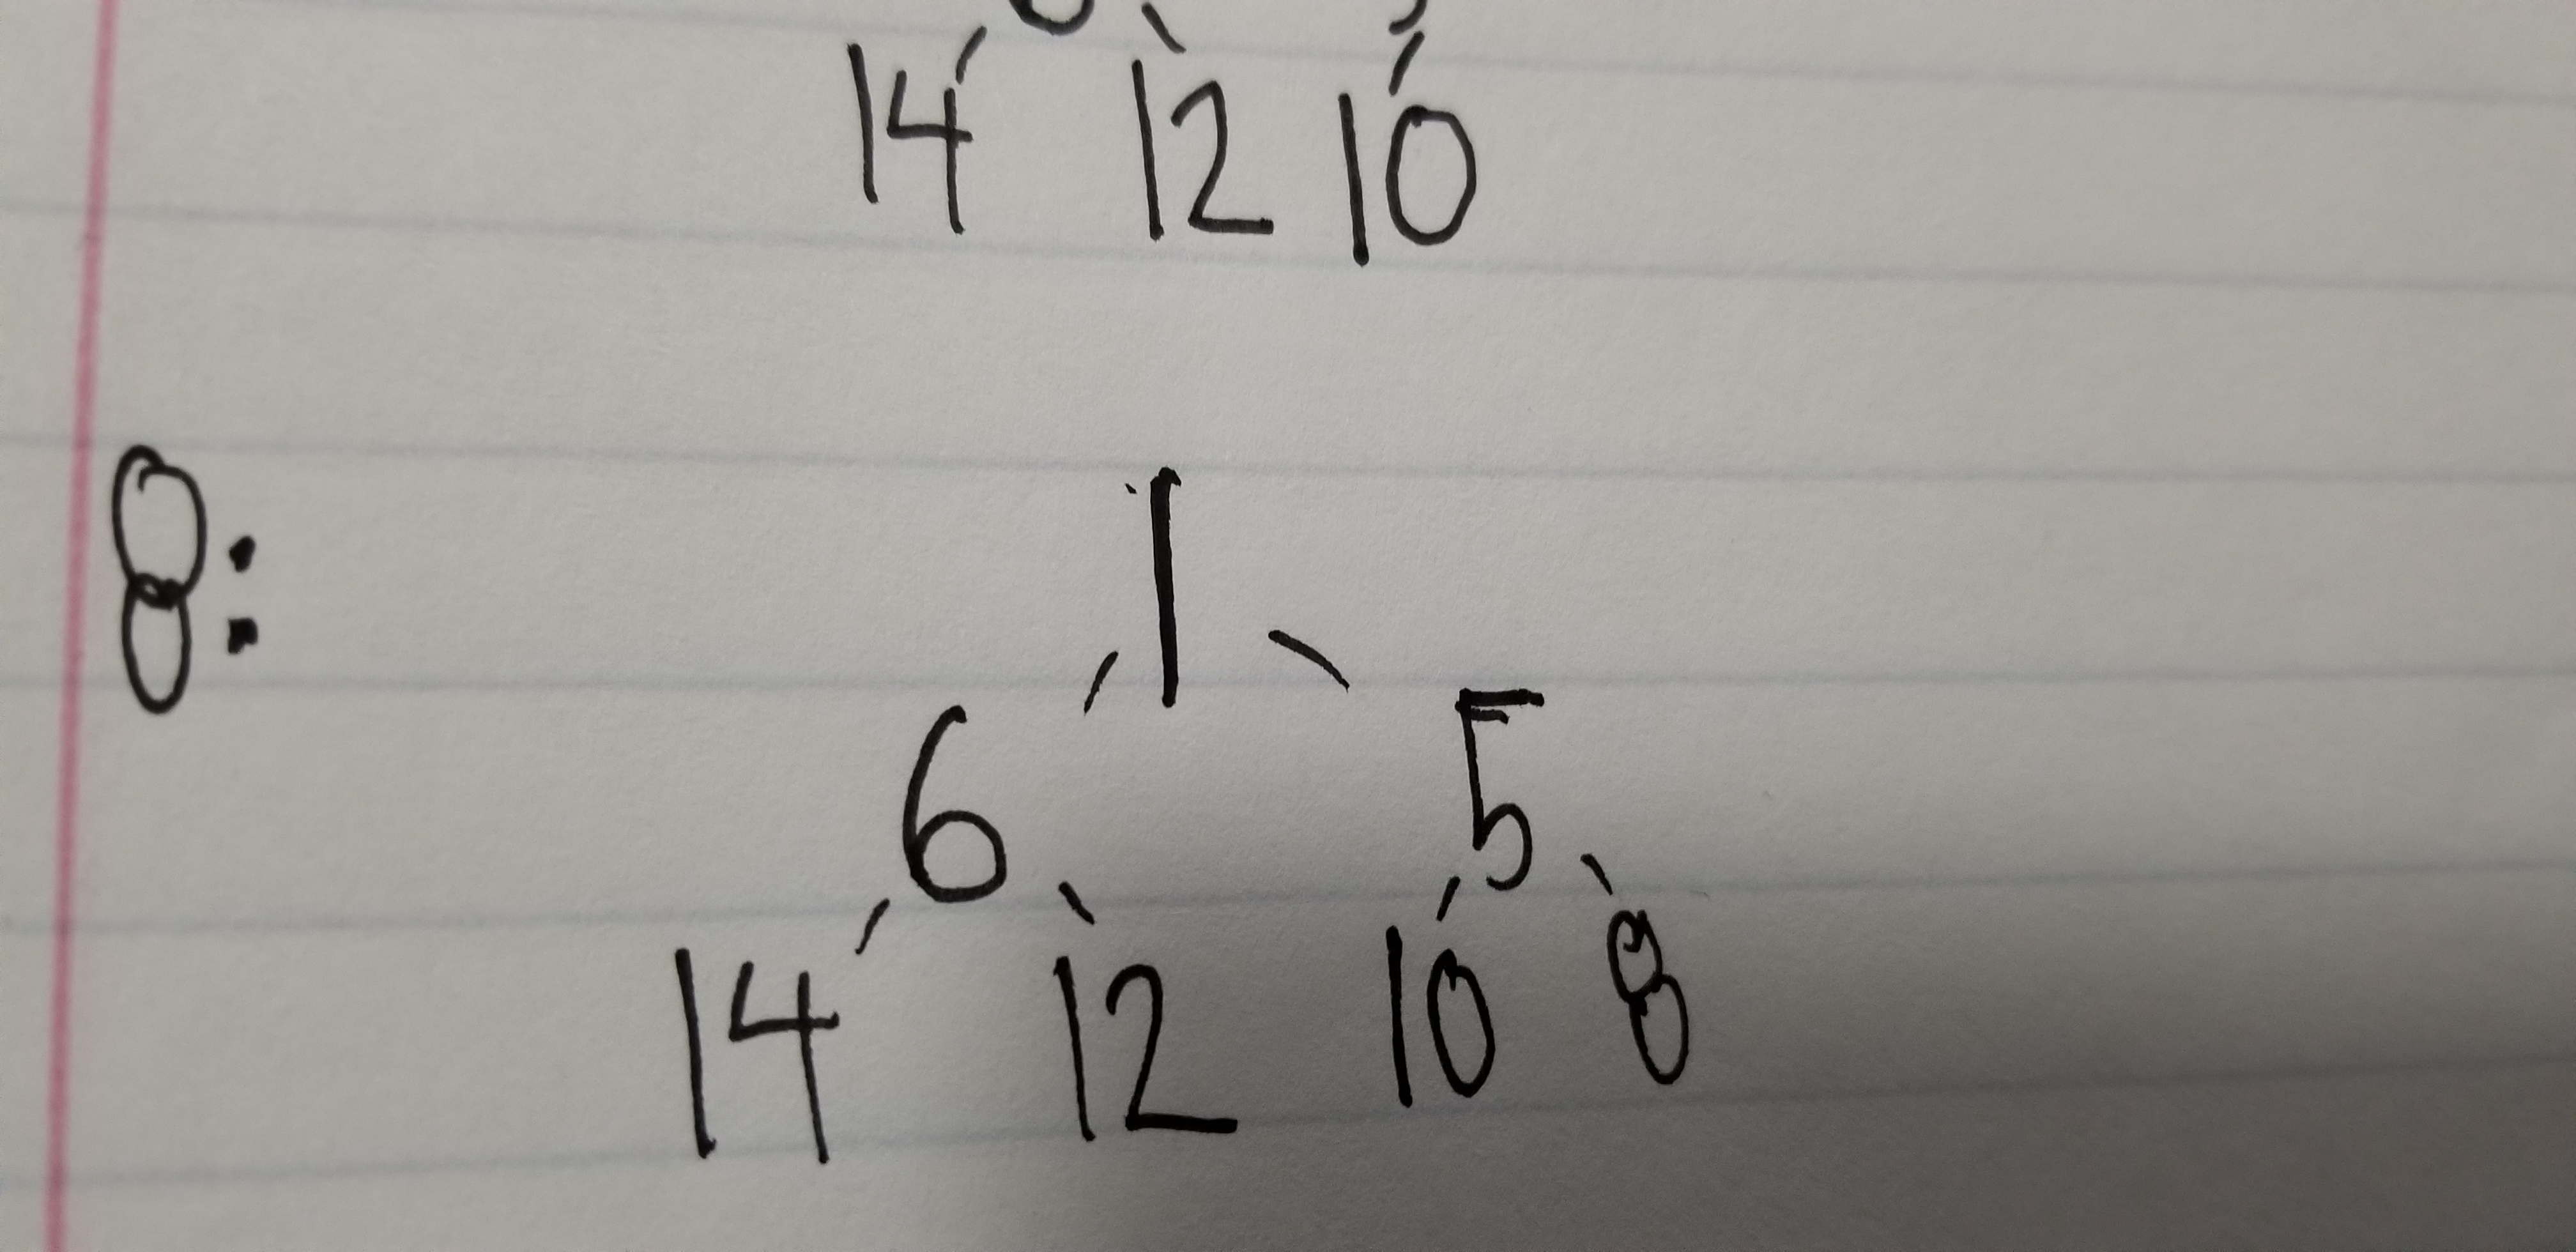 14 12 10
8: 1
6 5
14 12 10 8